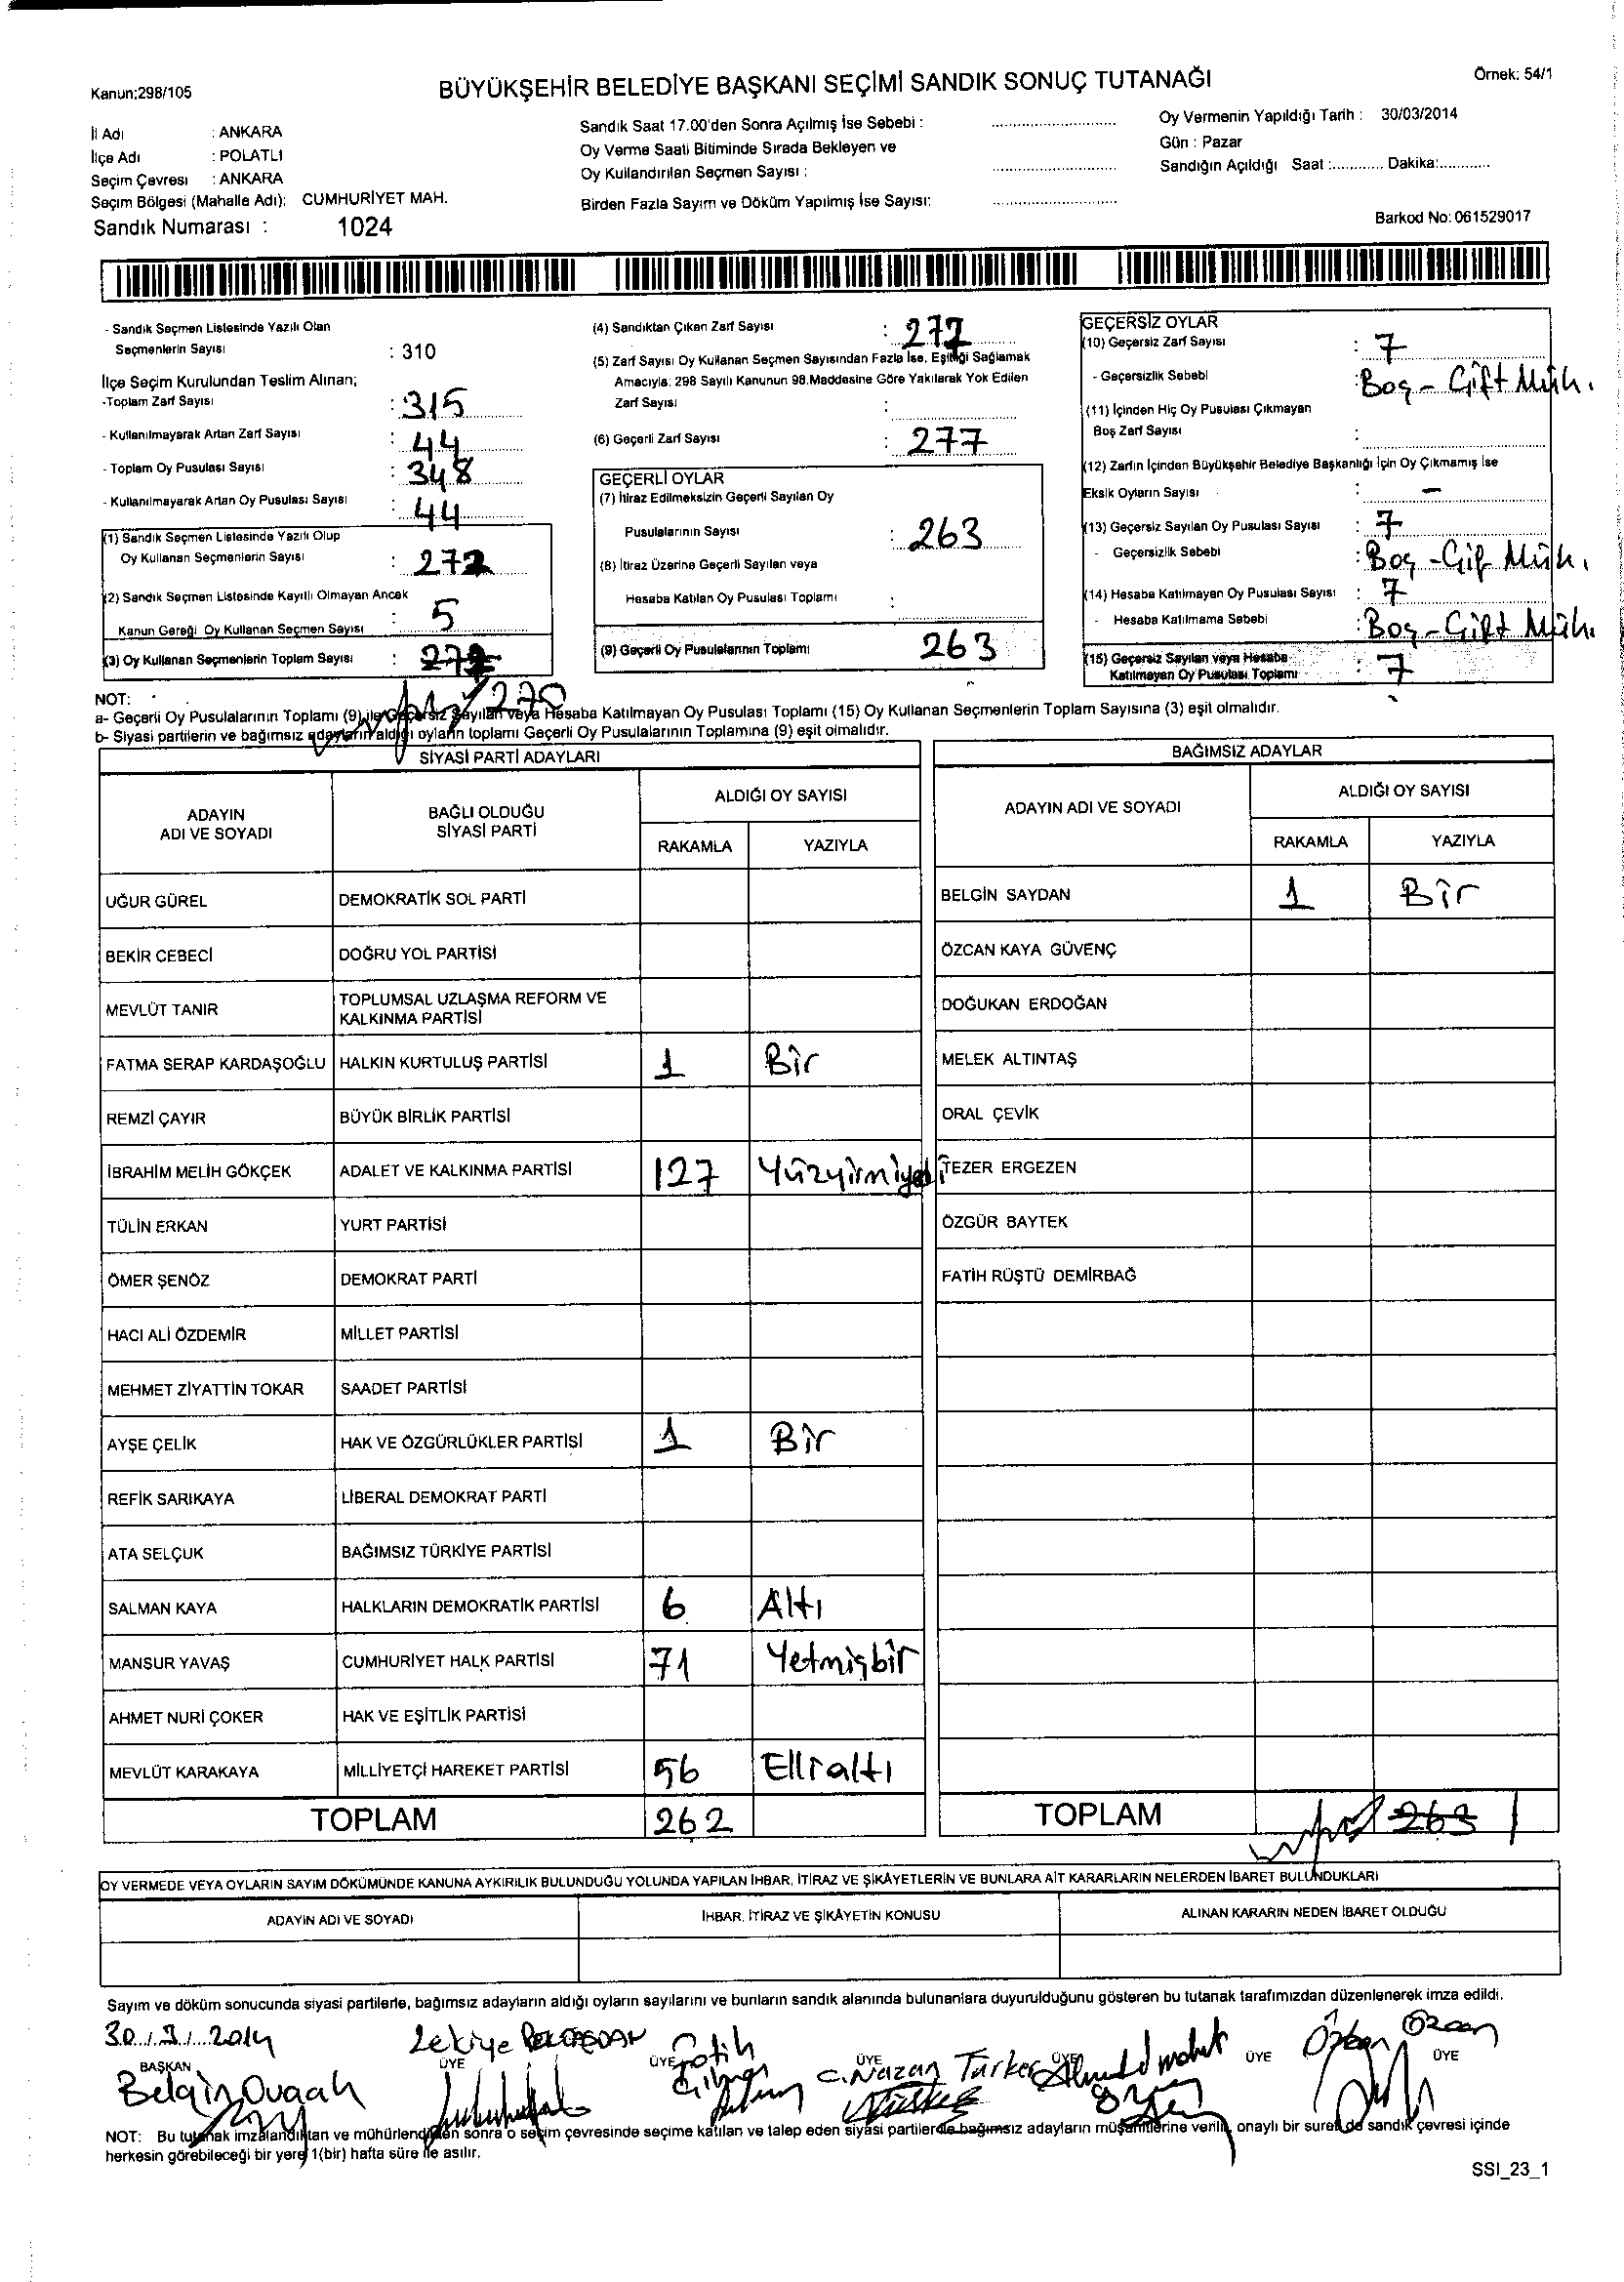 Kanun;298/105
BÜYÜKŞEHİR BELEDİYE BAŞKANI SEÇİMİ SANDIK SONUÇ TUTANAĞI
Örnek: 54/1
İl Adı : ANKARA
İlçe Adı : POLATLI
Seçim Çevresi : ANKARA
Seçim Bölgesi (Mahalle Adı): CUMHURİYET MAH.
Sandık Numarası : 1024
Sandık Saat 17.00'den Sonra Açılmış İse Sebebi :
Oy Verme Saati Bitiminde Sırada Bekleyen ve
Oy Kullandırılan Seçmen Sayısı :
Birden Fazla Sayım ve Döküm Yapılmış İse Sayısı:
Oy Vermenin Yapıldığı Tarih : 30/03/2014
Gün : Pazar
Sandığın Açıldığı Saat :............ Dakika:............
Barkod No: 061529017
- Sandık Seçmen Listesinde Yazılı Olan
Seçmenlerin Sayısı : 310
İlçe Seçim Kurulundan Teslim Alınan;
-Toplam Zarf Sayısı : 315
- Kullanılmayarak Artan Zarf Sayısı : 44
- Toplam Oy Pusulası Sayısı : 348
- Kullanılmayarak Artan Oy Pusulası Sayısı : 44
(1) Sandık Seçmen Listesinde Yazılı Olup
Oy Kullanan Seçmenlerin Sayısı : 272
(2) Sandık Seçmen Listesinde Kayıtlı Olmayan Ancak
Kanun Gereği Oy Kullanan Seçmen Sayısı : 5
(3) Oy Kullanan Seçmenlerin Toplam Sayısı : 277
270
(4) Sandıktan Çıkan Zarf Sayısı : 277
(5) Zarf Sayısı Oy Kullanan Seçmen Sayısından Fazla İse, Eşitliği Sağlamak
Amacıyla; 298 Sayılı Kanunun 98.Maddesine Göre Yakılarak Yok Edilen
Zarf Sayısı :
(6) Geçerli Zarf Sayısı : 277
GEÇERLİ OYLAR
(7) İtiraz Edilmeksizin Geçerli Sayılan Oy
Pusulalarının Sayısı : 263
(8) İtiraz Üzerine Geçerli Sayılan veya
Hesaba Katılan Oy Pusulası Toplamı :
(9) Geçerli Oy Pusulalarının Toplamı 263
GEÇERSİZ OYLAR
(10) Geçersiz Zarf Sayısı : 7
- Geçersizlik Sebebi : Boş - Çift Müh.
(11) İçinden Hiç Oy Pusulası Çıkmayan
Boş Zarf Sayısı :
(12) Zarfın İçinden Büyükşehir Belediye Başkanlığı İçin Oy Çıkmamış İse
Eksik Oyların Sayısı : -
(13) Geçersiz Sayılan Oy Pusulası Sayısı : 7
- Geçersizlik Sebebi : Boş - Çif Müh.
(14) Hesaba Katılmayan Oy Pusulası Sayısı : 7
- Hesaba Katılmama Sebebi : Boş - Çift Müh.
(15) Geçersiz Sayılan veya Hesaba
Katılmayan Oy Pusulası Toplamı : 7
NOT:
a- Geçerli Oy Pusulalarının Toplamı (9) ile Geçersiz Sayılan veya Hesaba Katılmayan Oy Pusulası Toplamı (15) Oy Kullanan Seçmenlerin Toplam Sayısına (3) eşit olmalıdır.
b- Siyasi partilerin ve bağımsız adayların aldığı oyların toplamı Geçerli Oy Pusulalarının Toplamına (9) eşit olmalıdır.
SİYASİ PARTİ ADAYLARI
ADAYIN ADI VE SOYADI
BAĞLI OLDUĞU SİYASİ PARTİ
ALDIĞI OY SAYISI
RAKAMLA YAZIYLA
UĞUR GÜREL DEMOKRATİK SOL PARTİ
BEKİR CEBECİ DOĞRU YOL PARTİSİ
MEVLÜT TANIR TOPLUMSAL UZLAŞMA REFORM VE KALKINMA PARTİSİ
FATMA SERAP KARDAŞOĞLU HALKIN KURTULUŞ PARTİSİ 1 Bir
REMZİ ÇAYIR BÜYÜK BİRLİK PARTİSİ
İBRAHİM MELİH GÖKÇEK ADALET VE KALKINMA PARTİSİ 127 Yüzyirmiyedi
TÜLİN ERKAN YURT PARTİSİ
ÖMER ŞENÖZ DEMOKRAT PARTİ
HACI ALİ ÖZDEMİR MİLLET PARTİSİ
MEHMET ZİYATTİN TOKAR SAADET PARTİSİ
AYŞE ÇELİK HAK VE ÖZGÜRLÜKLER PARTİSİ 1 Bir
REFİK SARIKAYA LİBERAL DEMOKRAT PARTİ
ATA SELÇUK BAĞIMSIZ TÜRKİYE PARTİSİ
SALMAN KAYA HALKLARIN DEMOKRATİK PARTİSİ 6 Altı
MANSUR YAVAŞ CUMHURİYET HALK PARTİSİ 71 Yetmişbir
AHMET NURİ ÇOKER HAK VE EŞİTLİK PARTİSİ
MEVLÜT KARAKAYA MİLLİYETÇİ HAREKET PARTİSİ 56 Elliraltı
TOPLAM 262
BAĞIMSIZ ADAYLAR
ADAYIN ADI VE SOYADI
ALDIĞI OY SAYISI
RAKAMLA YAZIYLA
BELGİN SAYDAN 1 Bir
ÖZCAN KAYA GÜVENÇ
DOĞUKAN ERDOĞAN
MELEK ALTINTAŞ
ORAL ÇEVİK
TEZER ERGEZEN
ÖZGÜR BAYTEK
FATİH RÜŞTÜ DEMİRBAĞ
TOPLAM 263 1
OY VERMEDE VEYA OYLARIN SAYIM DÖKÜMÜNDE KANUNA AYKIRILIK BULUNDUĞU YOLUNDA YAPILAN İHBAR, İTİRAZ VE ŞİKAYETLERİN VE BUNLARA AİT KARARLARIN NELERDEN İBARET BULUNDUKLARI
ADAYIN ADI VE SOYADI
İHBAR, İTİRAZ VE ŞİKAYETİN KONUSU
ALINAN KARARIN NEDEN İBARET OLDUĞU
Sayım ve döküm sonucunda siyasi partilerle, bağımsız adayların aldığı oyların sayılarını ve bunların sandık alanında bulunanlara duyurulduğunu gösteren bu tutanak tarafımızdan düzenlenerek imza edildi.
30/3/2014
BAŞKAN ÜYE ÜYE ÜYE ÜYE ÜYE ÜYE
Zekiye
Fatih
C. Nazan Türker
Özcan
NOT: Bu tutanak imzalandıktan ve mühürlendikten sonra o seçim çevresinde seçime katılan ve talep eden siyasi partilerle bağımsız adayların müşahitlerine verilir, onaylı bir sureti de sandık çevresi içinde
herkesin görebileceği bir yere 1(bir) hafta süre ile asılır.
SSI_23_1